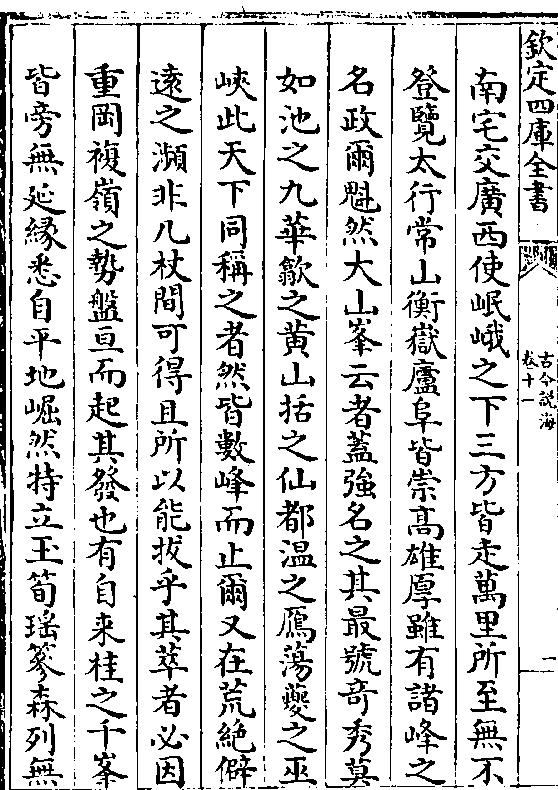 欽定四庫全書
古今説海
卷十一
一
南宅交廣西使岷峨之下三方皆走萬里所至無不
登覽太行常山衡嶽廬阜皆崇髙雄厚雖有諸峰之
名政爾魁然大山峯云者蓋強名之其最號竒秀莫
如池之九華歙之黄山括之仙都温之鴈蕩夔之巫
峽此天下同稱之者然皆數峰而止爾又在荒絶僻
逺之瀕非几杖間可得且所以能拔乎其萃者必因
重岡複嶺之勢盤亘而起其發也有自来桂之千峯
皆旁無延縁悉自平地崛然特立玉筍瑶篸森列無